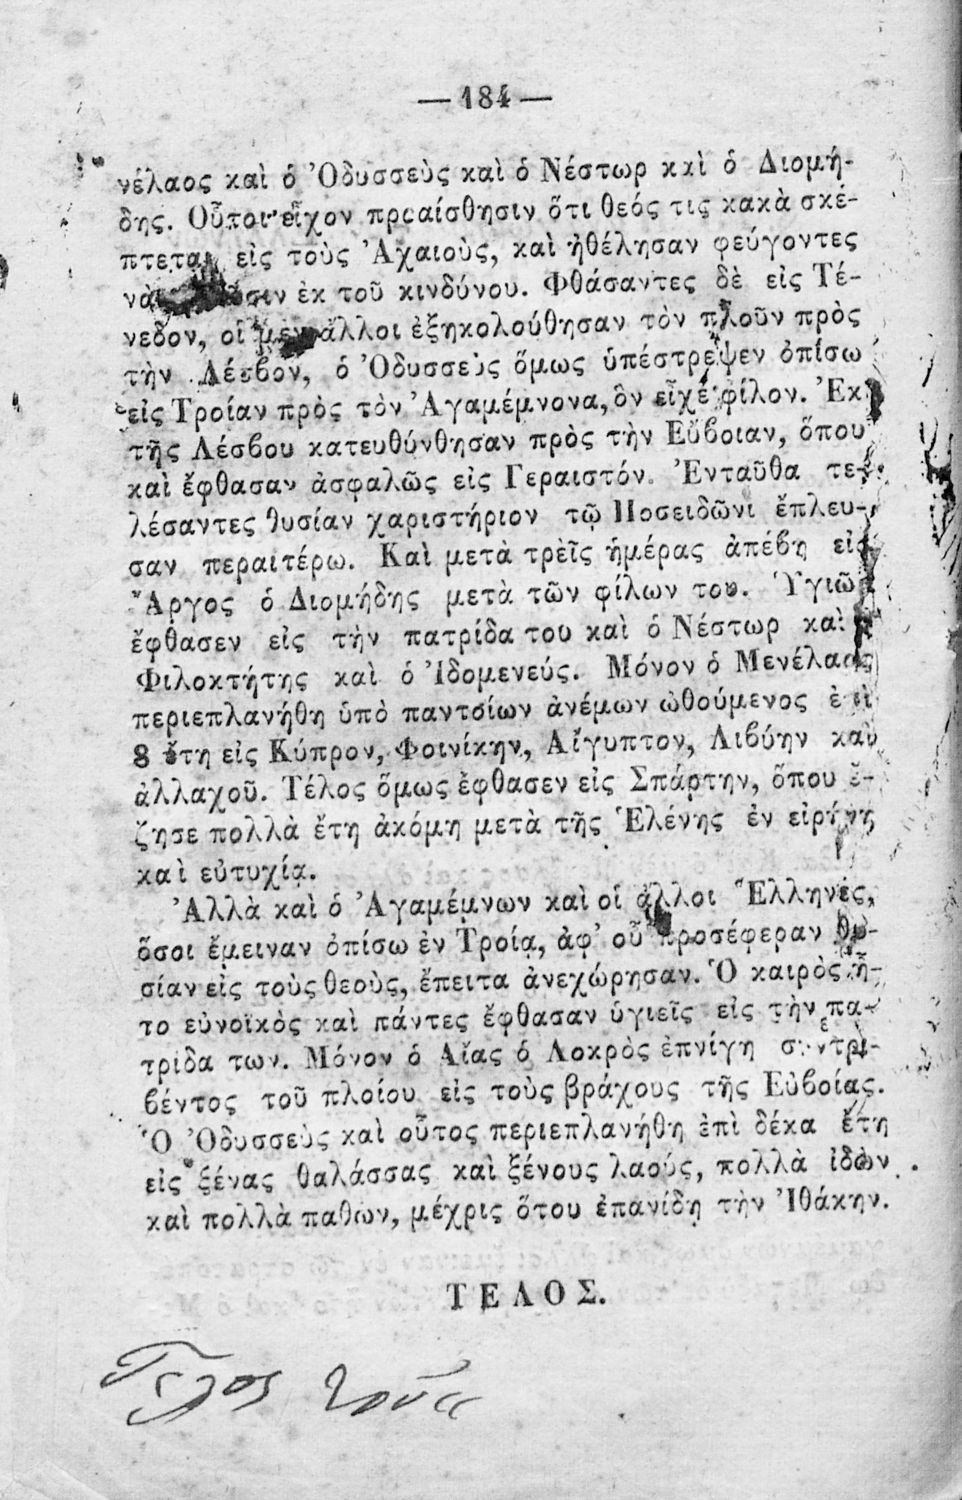 — 184 —
νέλαος καὶ ὁ Ὀδυσσεὺς καὶ ὁ Νέστωρ καὶ ὁ Διομή-
δης. Οὗτοι εἶχον προαίσθησιν ὅτι θεός τις κακὰ σκέ-
πτεται εἰς τοὺς Ἀχαιοὺς, καὶ ἠθέλησαν φεύγοντες
νὰ ἐκ τοῦ κινδύνου. Φθάσαντες δὲ εἰς Τέ-
νεδον, οἱ μὲν ἄλλοι ἐξηκολούθησαν τὸν πλοῦν πρὸς
τὴν Λέσβον, ὁ Ὀδυσσεὺς ὅμως ὑπέστρεψεν ὀπίσω
εἰς Τροίαν πρὸς τὸν Ἀγαμέμνονα, ὃν εἶχε φίλον. Ἐκ
τῆς Λέσβου κατευθύνθησαν πρὸς τὴν Εὔβοιαν, ὅπου
καὶ ἔφθασαν ἀσφαλῶς εἰς Γεραιστόν. Ἐνταῦθα τε-
λέσαντες θυσίαν χαριστήριον τῷ Ποσειδῶνι ἔπλευ-
σαν περαιτέρω. Καὶ μετὰ τρεῖς ἡμέρας ἀπέβη εἰς
Ἄργος ὁ Διομήδης μετὰ τῶν φίλων του. Ὑγιῶς
ἔφθασεν εἰς τὴν πατρίδα του καὶ ὁ Νέστωρ καὶ
Φιλοκτήτης καὶ ὁ Ἰδομενεύς. Μόνον ὁ Μενέλαος
περιεπλανήθη ὑπὸ παντοίων ἀνέμων ὠθούμενος ἐπὶ
8 ἔτη εἰς Κύπρον, Φοινίκην, Αἴγυπτον, Λιβύην καὶ
ἀλλαχοῦ. Τέλος ὅμως ἔφθασεν εἰς Σπάρτην, ὅπου ἔ-
ζησε πολλὰ ἔτη ἀκόμη μετὰ τῆς Ἑλένης ἐν εἰρήνῃ
καὶ εὐτυχίᾳ.
Ἀλλὰ καὶ ὁ Ἀγαμέμνων καὶ οἱ ἄλλοι Ἕλληνές,
ὅσοι ἔμειναν ὀπίσω ἐν Τροίᾳ, ἀφ' οὗ προσέφεραν θυ-
σίαν εἰς τοὺς θεοὺς, ἔπειτα ἀνεχώρησαν. Ὁ καιρὸς ἦ-
το εὐνοϊκὸς καὶ πάντες ἔφθασαν ὑγιεῖς εἰς τὴν πα-
τρίδα των. Μόνον ὁ Αἴας ὁ Λοκρὸς ἐπνίγη συντρι-
βέντος τοῦ πλοίου εἰς τοὺς βράχους τῆς Εὐβοίας.
Ὁ Ὀδυσσεὺς καὶ οὗτος περιεπλανήθη ἐπὶ δέκα ἔτη
εἰς ξένας θαλάσσας καὶ ξένους λαούς, πολλὰ ἰδὼν
καὶ πολλὰ παθων, μέχρις ὅτου ἐπανίδῃ τὴν Ἰθάκην.
ΤΕΛΟΣ.
Τέλος τοῦ